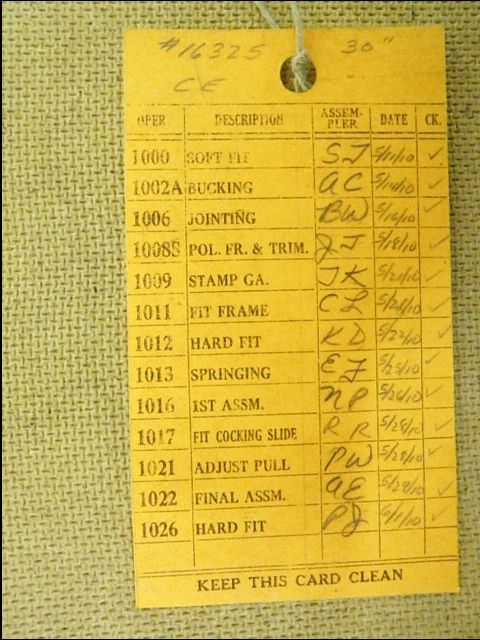 #16325 30"
CE
OPER DESCRIPTION ASSEM-BLER DATE CK.
1000 SOFT FIT SJ 5/11/10 ✓
1002A BUCKING AC 5/14/10 ✓
1006 JOINTING BW 5/16/10 ✓
1008S POL. FR. & TRIM. JJ 5/18/10 ✓
1009 STAMP GA. JK 5/21/10 ✓
1011 FIT FRAME CL ✓
1012 HARD FIT KD 5/22/10 ✓
1013 SPRINGING EJ 5/25/10 ✓
1016 1ST ASSM. NP 5/26/10 ✓
1017 FIT COCKING SLIDE RR 5/28/10 ✓
1021 ADJUST PULL PW 5/28/10 ✓
1022 FINAL ASSM. AE 5/29/10 ✓
1026 HARD FIT PJ 6/1/10 ✓
KEEP THIS CARD CLEAN